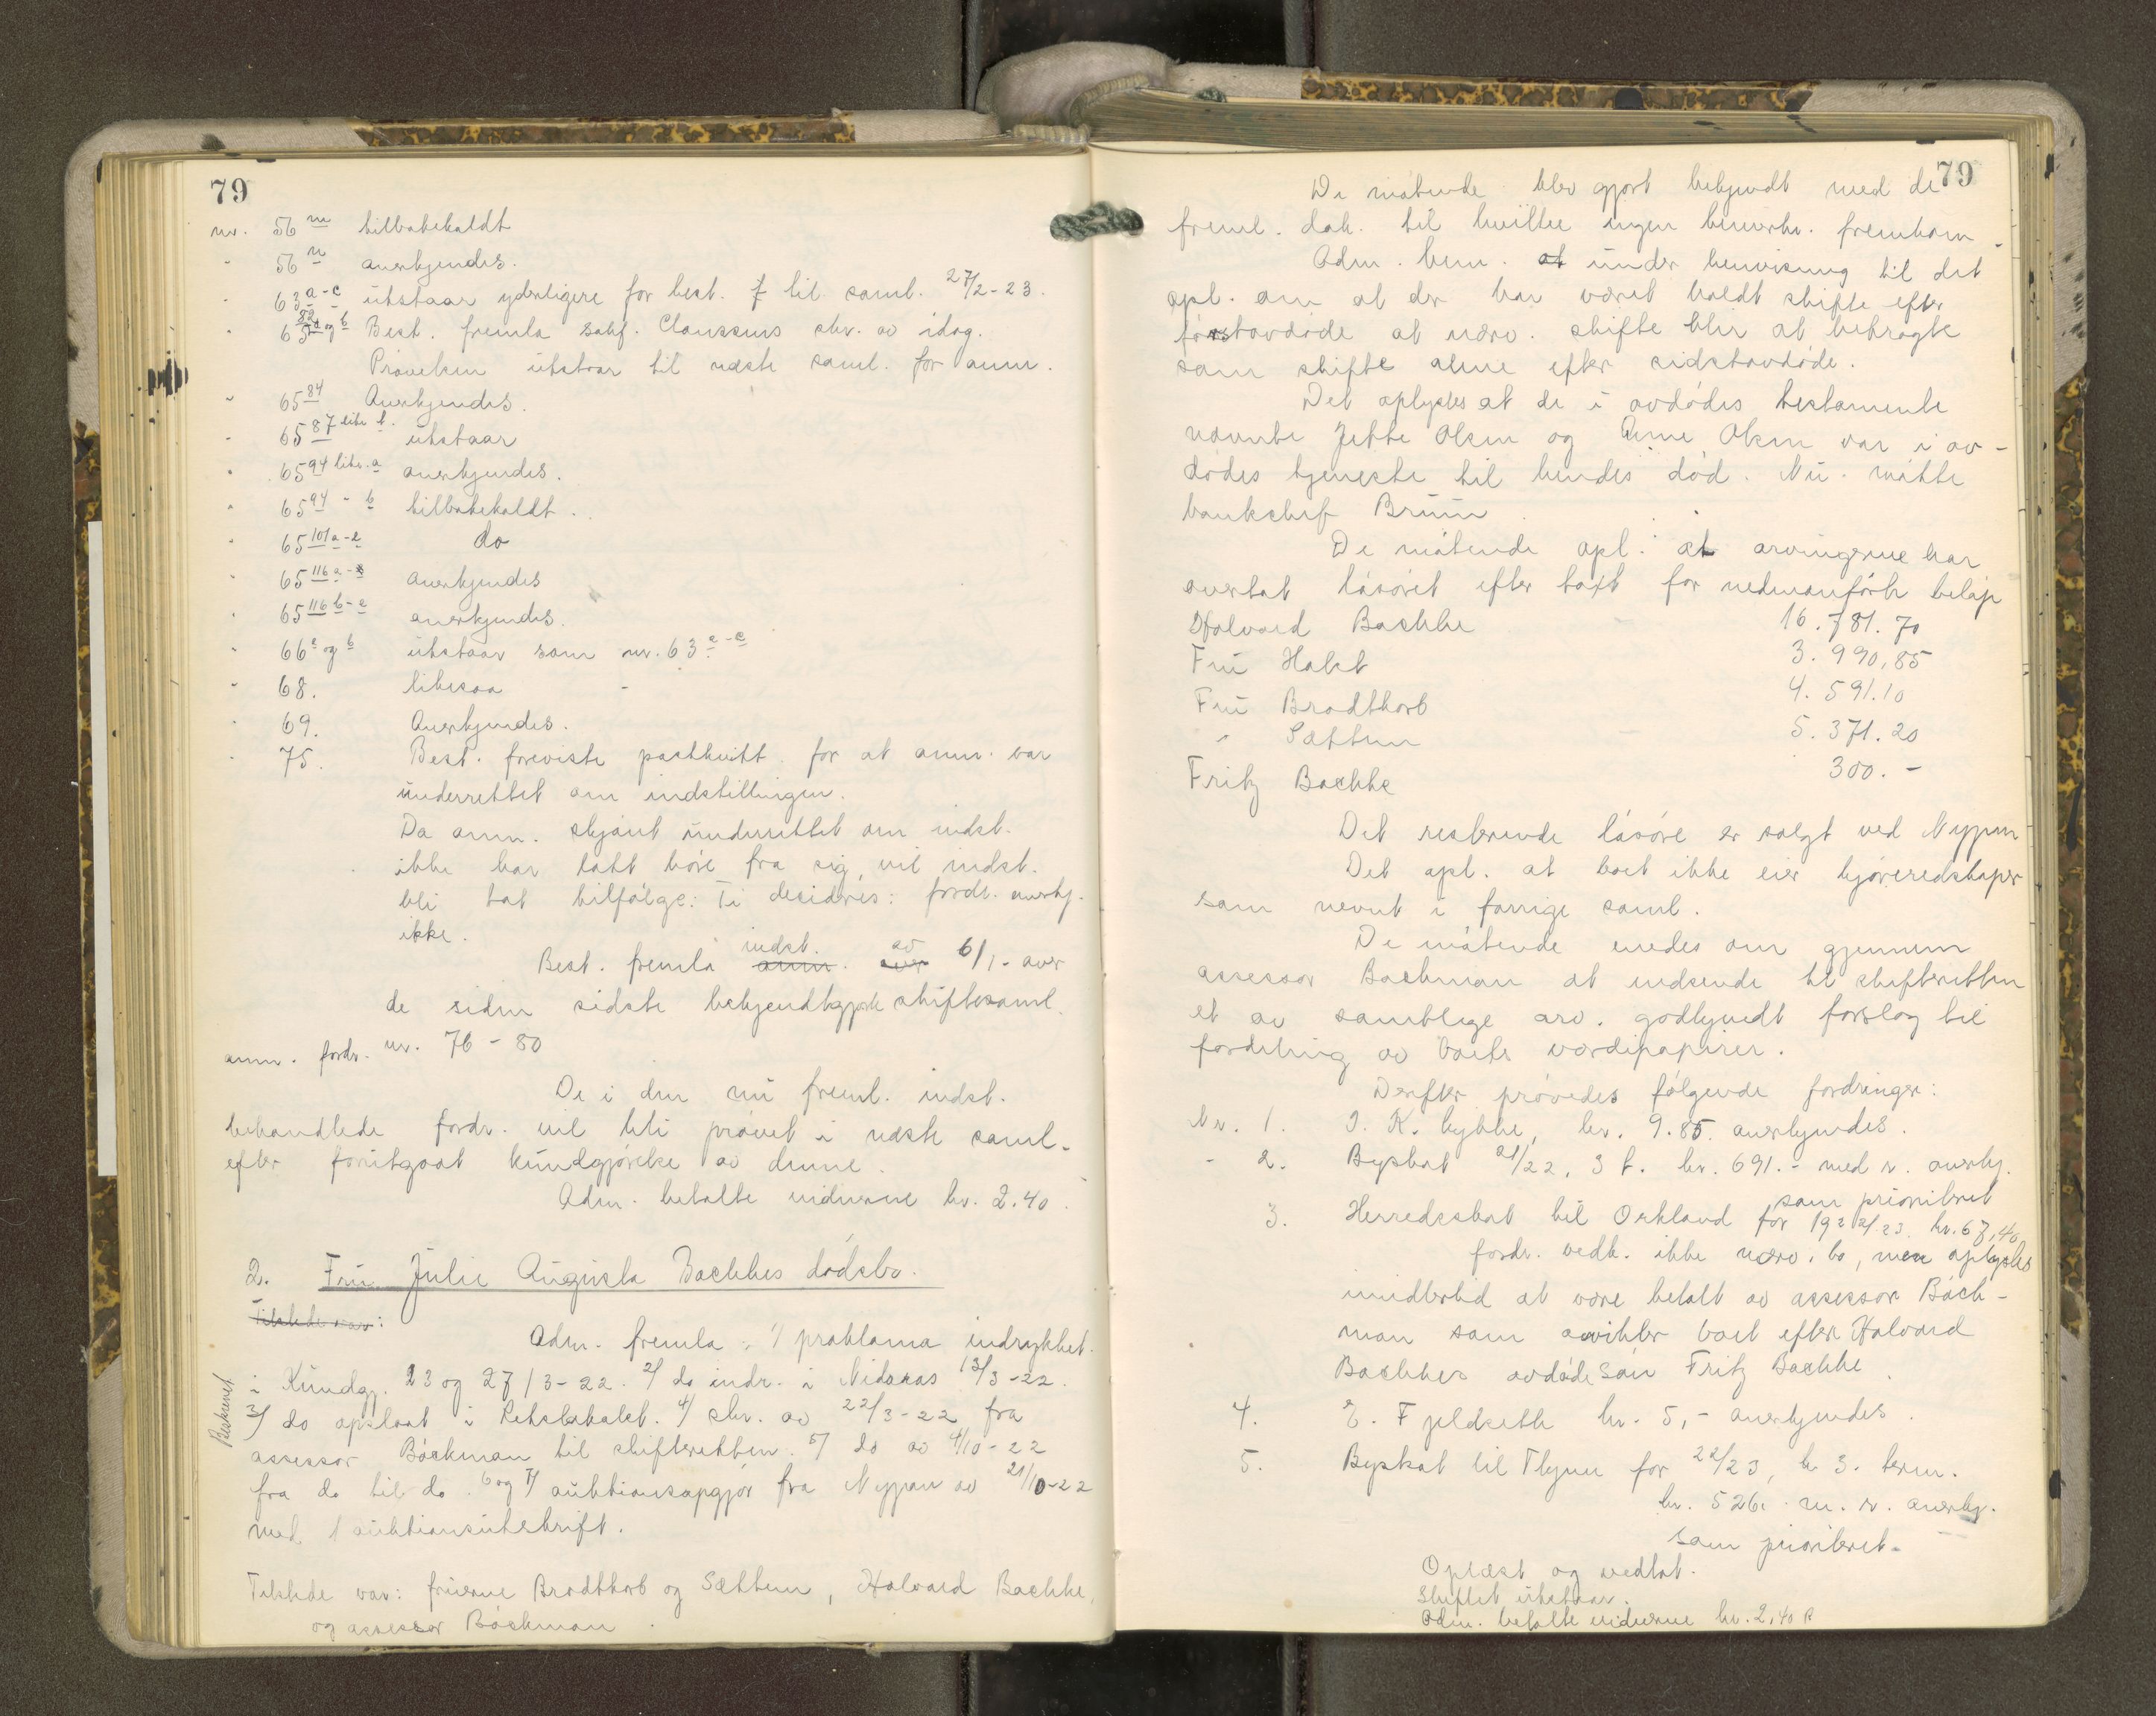 79
nr. 56 m tilbakekaldt
" 56 n anerkjendes.
" 63 a-c utstaar yderligere for best. f til saml. 27/2-23.
" 65 22 a og b Best. fremla sakf. Claussens skr. av idag.
Prøvelsen utstaar til næste saml. for anm.
" 65 84 Anerkjendes.
" 65 87 litr b. utstaar
" 65 94 litr. a anerkjendes.
" 65 94 - b tilbakekaldt.
" 65 101 a-e do
" 65 116 a- anerkjendes
" 65 116 b-e anerkjendes.
" 66 a og b utstaar som nr. 63 a-c
" 68. likesaa
" 69. Anerkjendes.
" 75. Best. foreviste postkvitt. for at anm. var
underrettet om indstillingen.
Da anm. skjønt underrettet om indst.
ikke har latt høre fra sig, vil indst.
bli tat tilfølge: Ti decideres: fordr. anerkj.
ikke.
Best. fremla anm. indst. over av 6/1- over
de siden sidste bekjendtgjorte skiftesaml.
anm. fordr. nr. 76 - 80
De i den nu freml. indst.
behandlede fordr. vil bli prøvet i næste saml.
efter forutgaat kundgjørelse av denne.
Adm. betalte vidnerne kr. 2.40.
2. Fru Julie Augusta Bachkes dødsbo.
Tilstede var:
Adm. fremla: 1/ proklama indrykket
i Kundgj. 23 og 27/3-22. 2/ do indr. i Nidaros 13/3-22.
Beskrevet
3/ do opslaat i Retslokalet. 4/ skr. av 22/3-22 fra
assessor Bøckman til skifteretten. 5/ do av 4/10-22
fra do til do. 6 og 7/ auktionsopgjør fra Nypan av 21/10-22
med 1 auktionsutskrift.
Tilstede var: fruerne Brodtkorb og Sættem, Halvard Bachke,
og assessor Bøckman.
79
De møtende blev gjort bekjendt med de
freml. dok. til hvilke ingen bemerkn. fremkom.
Adm. bem. at under henvisning til det
opl. om at der har været holdt skifte efter
førstavdøde at nærv. skifte blir at betragte
som skifte alene efter sidstavdøde.
Det oplystes at de i avdødes testamente
nævnte Jette Olsen og Anne Olsen var i av-
dødes tjeneste til hendes død. Nu møtte
bankchef Bruun.
De møtende opl. at arvingerne har
overtat løsøret efter takst for nedenanførte beløp
Halvard Bachke 16.781.70
Fru Holst 3.990,85
Fru Brodtkorb 4.591.10
" Sættem 5.371.20
Fritz Bachke 300.-
Det resterende løsøre er solgt ved Nypan
Det opl. at boet ikke eier kjøreredskaper
som nevnt i forrige saml.
De møtende enedes om gjennem
assessor Bøckman at indsende til skifteretten
et av samtlige arv. godkjendt forslag til
fordeling av boets værdipapirer.
Derefter prøvedes følgende fordringer:
Nr. 1. I. K. Lykke, kr. 9.85. anerkjendes.
- 2. Byskat 21/22, 3 t. kr. 691.- med r. anerkj.
som prioritert
3. Herredsskat til Orkland for 1922/23. kr. 67,40
fordr. vedk. ikke nærv. bo, men oplystes
imidlertid at være betalt av assessor Bøck-
man som avvikler boet efter Halvard
Bachkes avdøde søn Fritz Bachke.
4. E. Fjeldseth kr. 5,- anerkjendes.
5. Byskat til Thjem for 22/23, 3. term.
kr. 526.- m. r. anerkj.
som prioritert.
Oplæst og vedtat.
Skiftet utstaar.
Adm. betalte vidnerne kr. 2,40